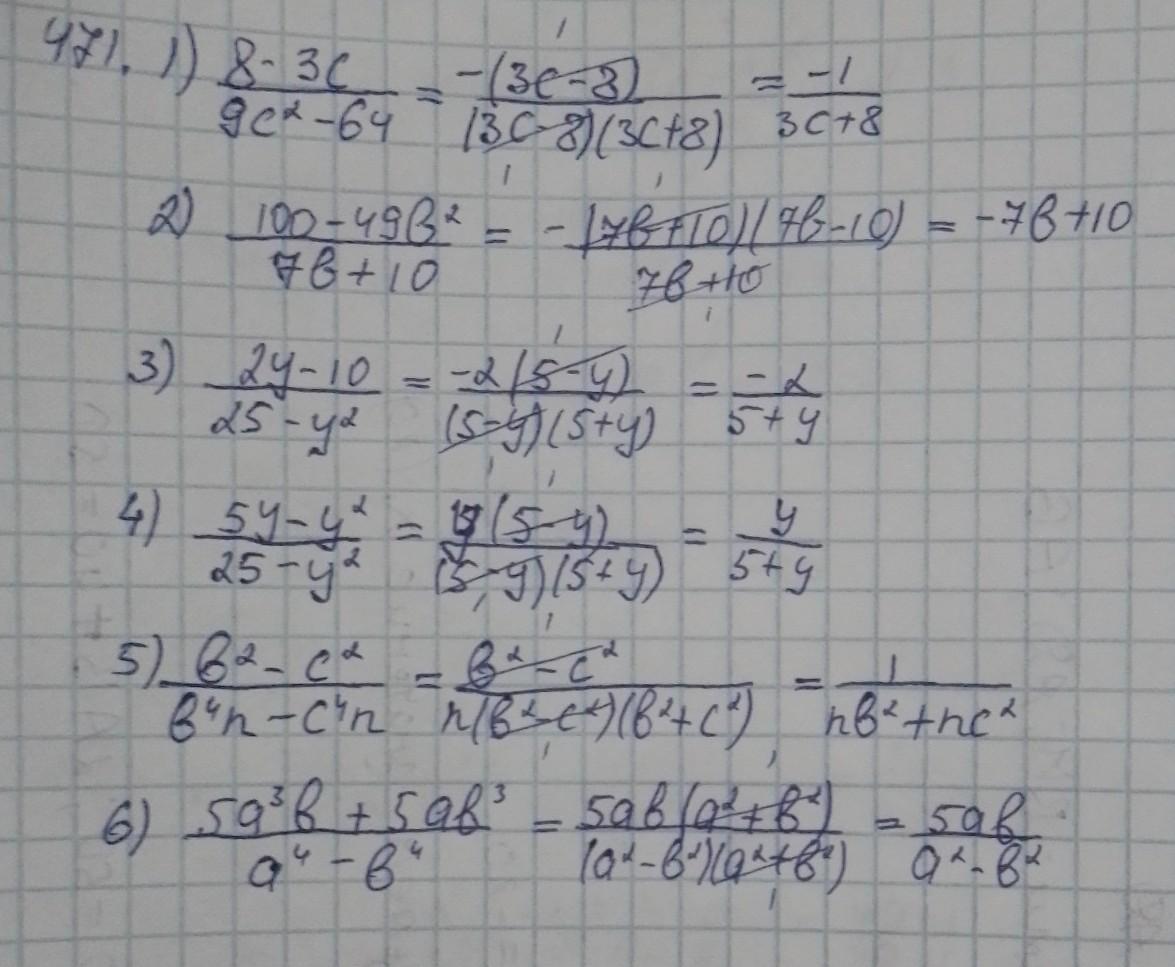 471. 1) (8 - 3c)/(9c² - 64) = -(3c - 8)/((3c - 8)(3c + 8)) = -1/(3c + 8)
2) (100 - 49в²)/(7в + 10) = -(7в + 10)(7в - 10)/(7в + 10) = -7в + 10
3) (2y - 10)/(25 - y²) = -2(5 - y)/((5 - y)(5 + y)) = -2/(5 + y)
4) (5y - y²)/(25 - y²) = y(5 - y)/((5 - y)(5 + y)) = y/(5 + y)
5) (в² - c²)/(в⁴n - c⁴n) = (в² - c²)/(n(в² - c²)(в² + c²)) = 1/(nв² + nc²)
6) (5a³в + 5aв³)/(a⁴ - в⁴) = 5aв(a² + в²)/((a² - в²)(a² + в²)) = 5aв/(a² - в²)